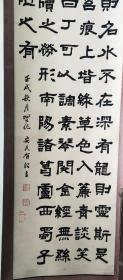 名水不在深有龍則靈斯是
痕上階綠草色入簾青談笑
白丁可以調素琴閱金經無絲
勞形南陽諸葛廬西蜀子
陋之有